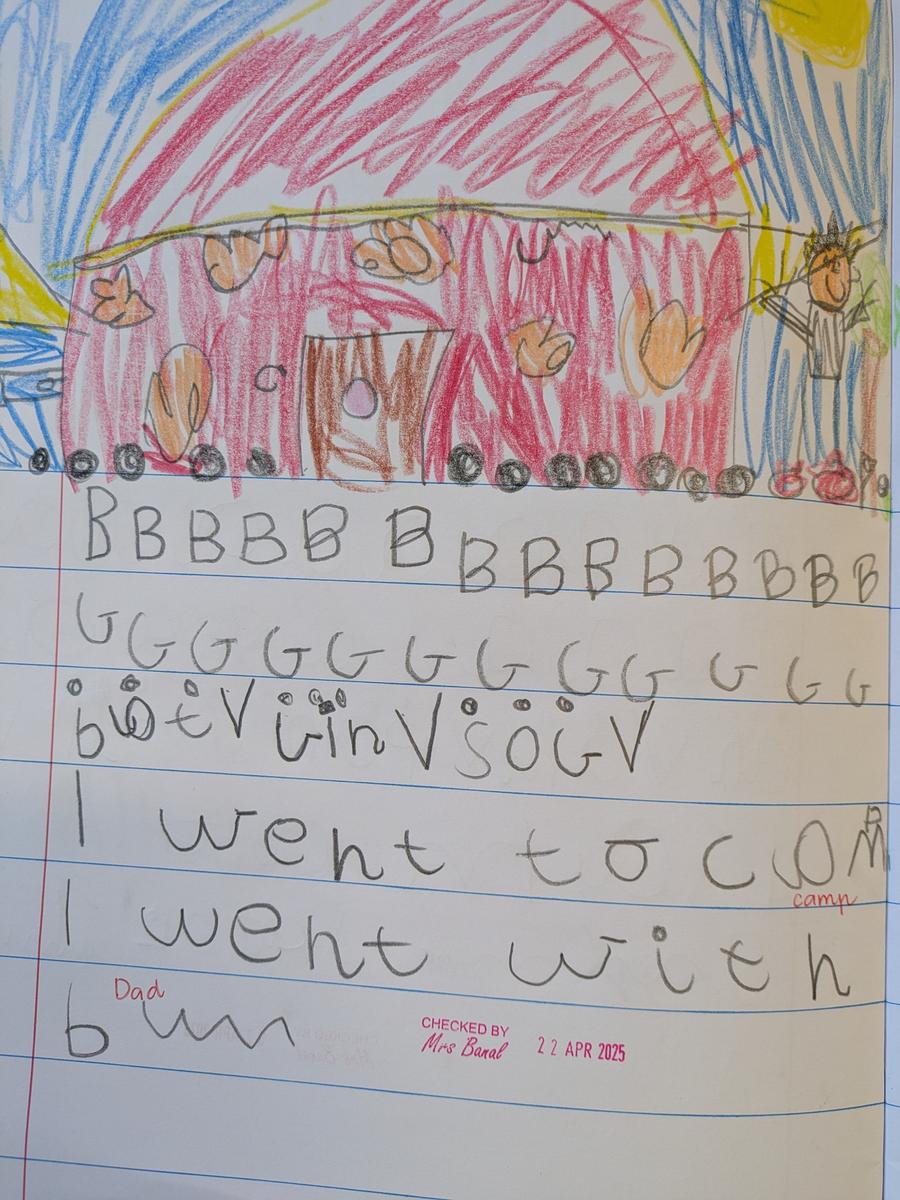 B B B B B B B B B B B B B B
G G G G G G G G G G G G
bat V Gin V SOG V
I went to com
camp
I went with
Dad
b
CHECKED BY
Mrs Banal 22 APR 2025